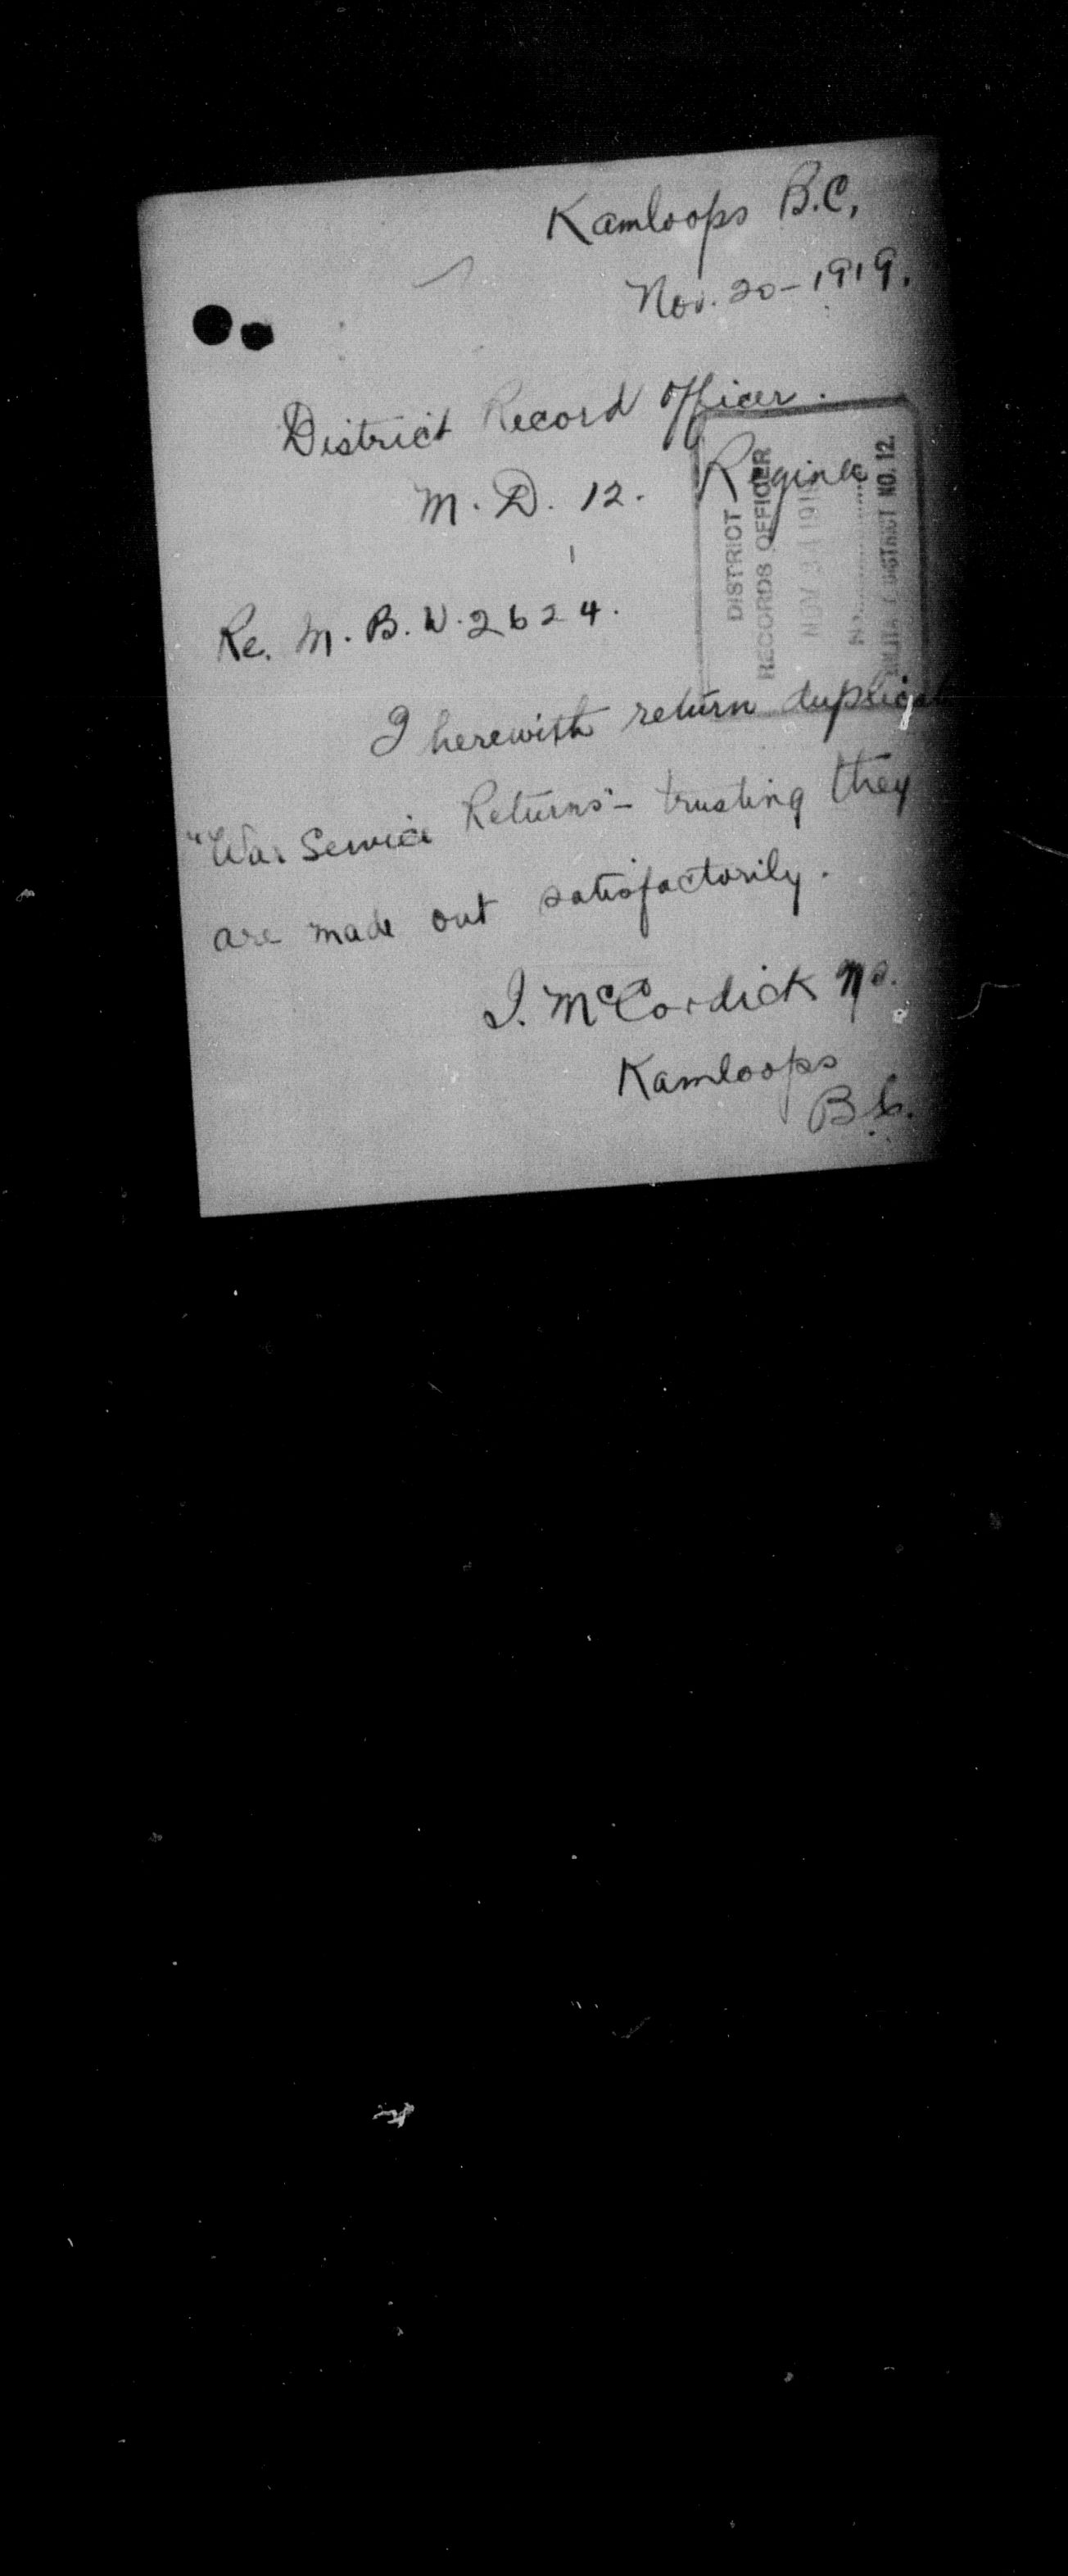 Kamloops B.C,
Nov. 20 - 1919.
District Record Officer.
M. D. 12. Regina
DISTRICT
RECORDS OFFICER
NOV 24 1919
MILITARY DISTRICT NO. 12.
Re. M. B. W. 2624.
I herewith return duplicate
"War Service Returns" - trusting they
are made out satisfactorily.
I. McCordick
Kamloops
B.C.